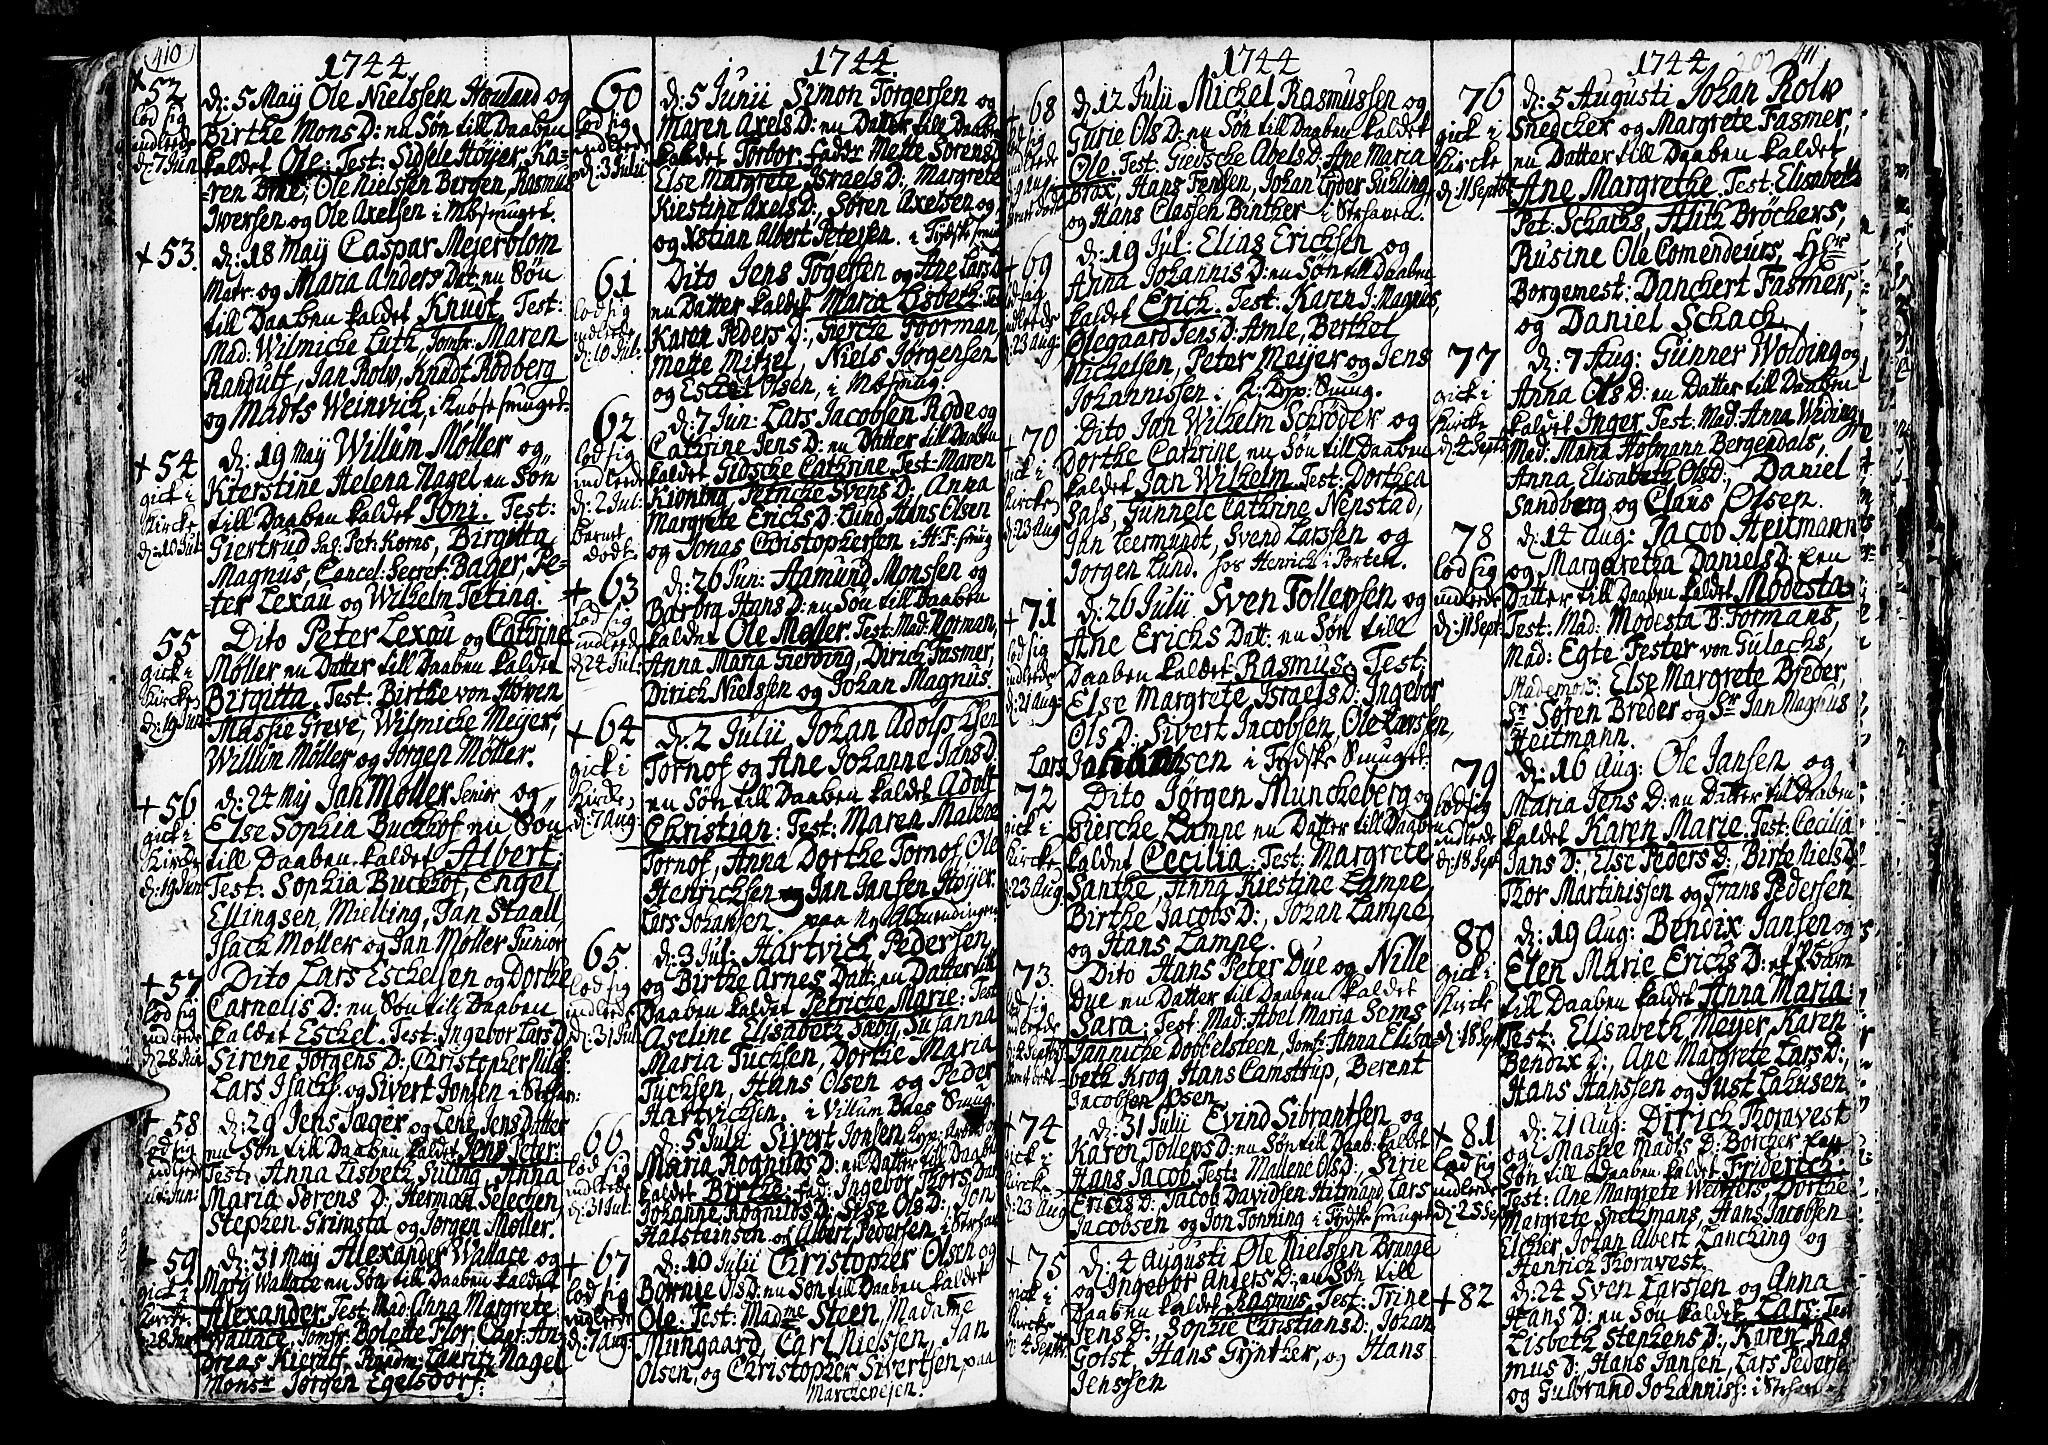 410
1744
+ 52
lod sig
indleede
d: 7 Jun:
d: 5 Maÿ Ole Nielssen Houland og
Birthe Mons D: en Søn till Daaben
kaldet Ole: Test: Sidsele Høÿer, Ka-
=ren Ome, Ole Nielssen Bergen, Rasmus
Iversen og Ole Axelsen i Mbsmuget.
+ 53.
d: 18 Maÿ Caspar Mejerblom
Matr: og Maria Anders Dat: en Søn
till Daaben kaldet Knudt, Test:
Mad: Wilmicke Luth, Jomfr: Maren
Randulf, Jan Rolv, Knudt Rødberg
og Madts Weinvich, i Knøsesmuget.
+ 54
gick i
Kircke
d: 10 Jul:
d: 19 Maÿ Willum Møller og
Kierstine Helena Nagel en Søn
till Daaben kaldet Joni. Test:
Giertrud Sal: Pet: Korns, Birgitta
Magnus, Cancel: Secret: Bager, Pe-
=ter Lexau og Wilhelm Teting.
55
gick i
Kircke
d: 19 Jun:
Dito Peter Lexau og Cathrine
Møller en Datter till Daaben kaldet
Birgitta. Test: Birthe von Høven
Maskie Greve, Wilmicke Meÿer,
Willum Møller og Jørgen Møller.
+ 56
gick i
Kircke
d: 19 Jun:
d: 24 Maj Jan Møller Senior og
Else Sophia Buchhof en Søn
till Daaben kaldet Albert:
Test: Sophia Buchhof, Engel
Ellingsen, Mielting, Jan Staall,
Isach Møller og Jan Møller Junior
+ 57
lod sig
indleede
d: 28 Jun:
Dito Lars Eschelsen og Dorthe
Carnelis D: en Søn till Daaben
kaldet Eschel. Test: Ingebor Lars D:
Sirene Jørgens D: Christopher Nils:
Lars Isachs: og Sivert Jonsen i Strhav:
+ 58
lod sig
indleede
d: 29 Jens Jæger og Lene Jens Datter
en Søn till Daaben kaldet Jens Peter:
Test: Anna Lisbeth Suling, Anna
Maria Sørens D: Herman Selechen,
Stephen Grimsta og Jørgen Møller.
+ 59
gick i
Kircke
d: 28 Jun:
d: 31 Maÿ Alexander Wallace og
Marÿ Wallace en Søn till Daaben kaldet
Alexander. Test: Mad: Anna Margrete
Wallace, Jomfr: Bolette Flor, Capt: An-
dreas Kierulf, Raadm: Lauritz Nagel
Monsr Jørgen Egelsdorf:
1744
60
lod sig
indleede
d: 3 Julii
d: 5 Junii Simon Torgersen og
Maren Axels D: en Datter till Daaben
kaldet Torbor: Faddr Mette Sørens D:
Else Margrete Israels D:, Margrete
Kiestine Axels D:, Søren Axelsen og
og Xstian Albert Petersen. i Tÿdske smug
61
lod sig
indleede
d: 10 Jul:
Dito Jens Tøgersen og Ane Lars D:
en Datter kaldet Maria Lisbeth: Te:
Karen Peders D:, Giercke Foorman,
Mette Mitzel, Niels Jørgensen
og Eschel Olsen, i Mbsmug.
62
lod sig
indleede
d: 2 Jul:
barnet
dødt
d: 7 Jun: Lars Jacobsen Rode og
Cathrine Jens D: en Datter till Daaben
kaldet Gidsche Cathrine. Test: Maren
Kioning, Petricke Svens D:, Anna
Margrete Erichs D: Lund, Hans Olsen
og Jonas Christophersen i H: F: smug
+ 63
lod sig
indleede
d: 24 Jul:
d: 26 Jun: Aamund Monssen og
Barbrg Hans D: en Søn till Daaben
kaldet Ole Møller. Test: Mad: Norman,
Anna Maria Gierding, Dirich Fasmer,
Dirich Nielssen og Johan Magnus
+ 64
gick i
Kircke
d: 7 Aug:
d: 2 Julii Johan Adolph Isen
Tornof og Ane Johanne Jans D:
en Søn till Daaben kaldet Adolf
Christian: Test: Maren Malene
Tornof, Anna Dorthe Tornof, Ole
Henrichsen og Jan Jansen Høÿer.
Lars Johansen. paa Nÿe Almendingen
65
lod sig
indleede
d: 31 Jul:
d: 3 Jul: Hartvich Pedersen
og Birthe Arnes Datt: en Datter till
Daaben kaldet Petricke Marie: Test:
Aseline Elisabeth Sabÿ, Susanna
Maria Tuchsen, Dortie Maria
Tuchsen, Hans Olsen og Peder
Hartvichsen. i Villum Baes Smug.
66
lod sig
indleede
d: 31 Jul:
d: 5 Julii Sivert Jonsen
Maria Rognilds D: en Datter till Daaben
kaldet Birthe. Fad: Ingebor Thors Dat:
Johanne Rognilds D: Sÿse Ols D:, Jon
Halsteinsen og Albert Pedersen i Strhav
+ 67
lod sig
indleede
d: 7 Aug:
d: 10 Julii Christopher Olsen og
Bornie Ols D: en Søn till Daaben kaldet
Ole: Test: Madme Steen, Madame
Mungaard, Carl Nielssen, Jan
Olsen, og Christopher Sivertsen, paa
Marckevejen.
1744
+ 68
lod sig
indleede
d: 12 Julii Michel Rasmussen og
Gurie Ols D: en Søn till Daaben kaldet
Ole. Test: Giedsche Abels D: Ane Maria
Brox, Hans Fenssen, Johan Lÿder Suhling
og Hans Classen Binther i Strhaven.
+ 69
lod sig
indleede
d: 23 Aug:
d: 19 Jul: Elias Erichsen og
Anna Johannis D: en Søn till Daaben
kaldet Erich. Test: Karen J: Magnus,
Olegaard Jens D: Amle, Berthel
Michelsen, Peter Meijer og Jens
Johannissen i R: Kyp: Smug.
+ 70
gick i
Kircke
d: 23 Aug
Dito Jan Wilhelm Schrøder og
Dorthe Cathrine en Søn till Daaben
kaldet Jan Wilhelm. Test: Dorthea
Sass, Gunnele Cathrine Nenstad,
Jan Leermundt, Svend Larssen og
Jørgen Lund. hos Henrich i Porten.
+ 71
lod sig
indleede
d: 21 Aug:
d: 26 Julii Sven Tollevsen og
Ane Erichs Datt: en Søn till
Daaben kaldet Rasmus. Test:
Else Margrete, Israels D: Ingebor
Ols D: Sivert Jacobsen, Ole Larssen,
Lars Johansen i Tÿdske Smuget.
72
gick i
Kircke
d: 23 Aug
Dito Jørgen Munckeberg og
Giercke Lampe en Datter till Daaben
kaldet Cecilia: Test: Margrete
Santhe, Anna Kiestine Lampe,
Birthe Jacobs D:, Johan Lampe,
og Hans Lampe.
73.
lod sig
indleede
Dito Hans Peter Dÿe og Nille
Dÿe en Datter till Daaben kaldet
Sara: Test: Mad: Abel Maria Sems
Jannicke Dobbelsteen, Jomfr: Anna Elisa-
beth Krog, Hans Camstrup, Berent
Jacobsen Osen.
+ 74
gick i
Kircke
d: 23 Aug
d: 31 Julii Evind Sibrantsen og
Karen Tollevs D: en Søn till Daab: kaldet
Hans Jacob. Test: Mallene Ols D:, Sirie
Erichs D: Jacob Davidsen Hitmand, Lars
Jacobsen og Jon Tonning i Tÿdske smuget
+ 75
gick i
Kircke
d: 4 Septbr
d: 4 Augusti Ole Nielssen Brange
og Ingebor Anders D: en Søn till
Daaben kaldet Rasmus. Test: Trine
Jens D:, Sophie Christians D:, Johan
Golst, Hans Gÿnther, og Hans
Jenssen
1744
202 411
76
gick i
Kircke
d: 11 Septbr
d: 5 Augusti Johan Rolv
Snedcker og Margrete Fasmer,
en Datter till Daaben kaldet
Ane Margrethe. Test: Elisabeth
Pet: Scharhs, Alith Bröchers,
Rusine Ole Comendeurs, Hr
Borgemest: Danchert Fasmer,
og Daniel Schach.
77
gick i
Kircke
d: 4 Septr
d: 7 Aug: Gunner Wolding og
Anna Ols D: en Datter till Daaben
kaldet Inger. Test: Mad: Anna Weding
Mad: Maria Hofmann Bergendals,
Anna Elisabeth Ols D:, Daniel
Sandberg og Claus Olsen.
78
lod sig
indleede
d: 11 Sept:
d: 14 Aug: Jacob Heitmann
og Margaretha Daniels D: een
Datter till Daaben kaldet Modesta
Test: Mad: Modesta B: Formans,
Mad: Egte Fester von Gulachs,
Mademois: Else Margrete Breder,
Sr Søren Breder og Sr Jan Magnus
Heitmann.
79
lod sig
indleede
d: 18 Sept
d: 16 Aug: Ole Jansen og
Maria Jens D: en Datter till Daaben
kaldet Karen Marie. Test: Cecilia
Jans D:, Else Peders D:, Birte Niels D:
Thor Martinissen og Frans Pedersen
80
gick i
Kircke
d: 18 Sept
d: 19 Aug: Bendix Jansen og
Elen Marie Erichs D: et P: barn
till Daaben kaldet Anna Maria:
Test: Elisabeth Meÿer, Karen
Bendix D:, Ane Margrete Lars D:,
Hans Hanssen og Just Lahusen
+ 81
lod sig
indleede
d: 25 Sept
d: 21 Aug: Dirrich Thoravest
og Maskie Madts D: Borcher een
Søn till Daaben kaldet Friderich:
Test: Ane Margrete Weiners, Dorthe
Margrete Spetzmans, Hans Jacobsen
Elcher, Johan Albert Lanching og
Henrich Thoravest.
+ 82
d: 24 Sven Larssen og Anna
Hans D: en Søn kaldet Lars: Test
Lisbeth Stephens D:, Karen Ras
mus D:, Hans Jansen, Lars Pederse
og Gulbrand Johanniss: i Strhav